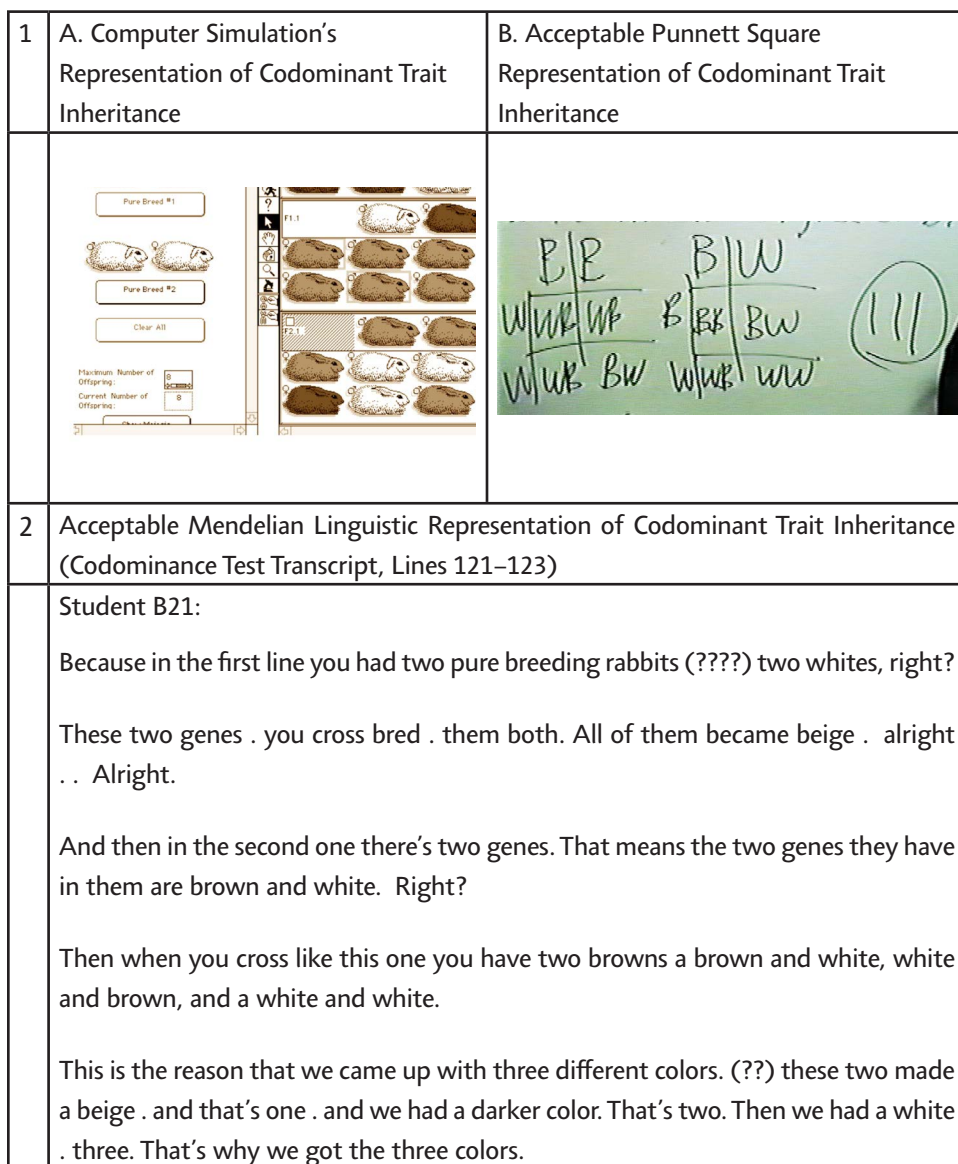 1
A. Computer Simulation's
Representation of Codominant Trait
Inheritance
B. Acceptable Punnett Square
Representation of Codominant Trait
Inheritance
Pure Breed #1
Pure Breed #2
Clear All
Maximum Number of
Offspring:
8
Current Number of
Offspring:
8
?
F1.1
F2.1
B B
W WB WB
W WB BW
B W
B BB BW
W WB WW
111
2
Acceptable Mendelian Linguistic Representation of Codominant Trait Inheritance
(Codominance Test Transcript, Lines 121–123)
Student B21:
Because in the first line you had two pure breeding rabbits (????) two whites, right?
These two genes . you cross bred . them both. All of them became beige . alright
. . Alright.
And then in the second one there's two genes. That means the two genes they have
in them are brown and white. Right?
Then when you cross like this one you have two browns a brown and white, white
and brown, and a white and white.
This is the reason that we came up with three different colors. (??) these two made
a beige . and that's one . and we had a darker color. That's two. Then we had a white
. three. That's why we got the three colors.